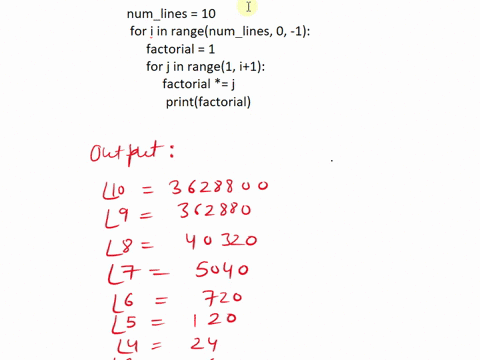 num_lines = 10
for i in range(num_lines, 0, -1):
factorial = 1
for j in range(1, i+1):
factorial *= j
print(factorial)
Output :
L10 = 3628800
L9 = 362880
L8 = 40320
L7 = 5040
L6 = 720
L5 = 120
L4 = 24